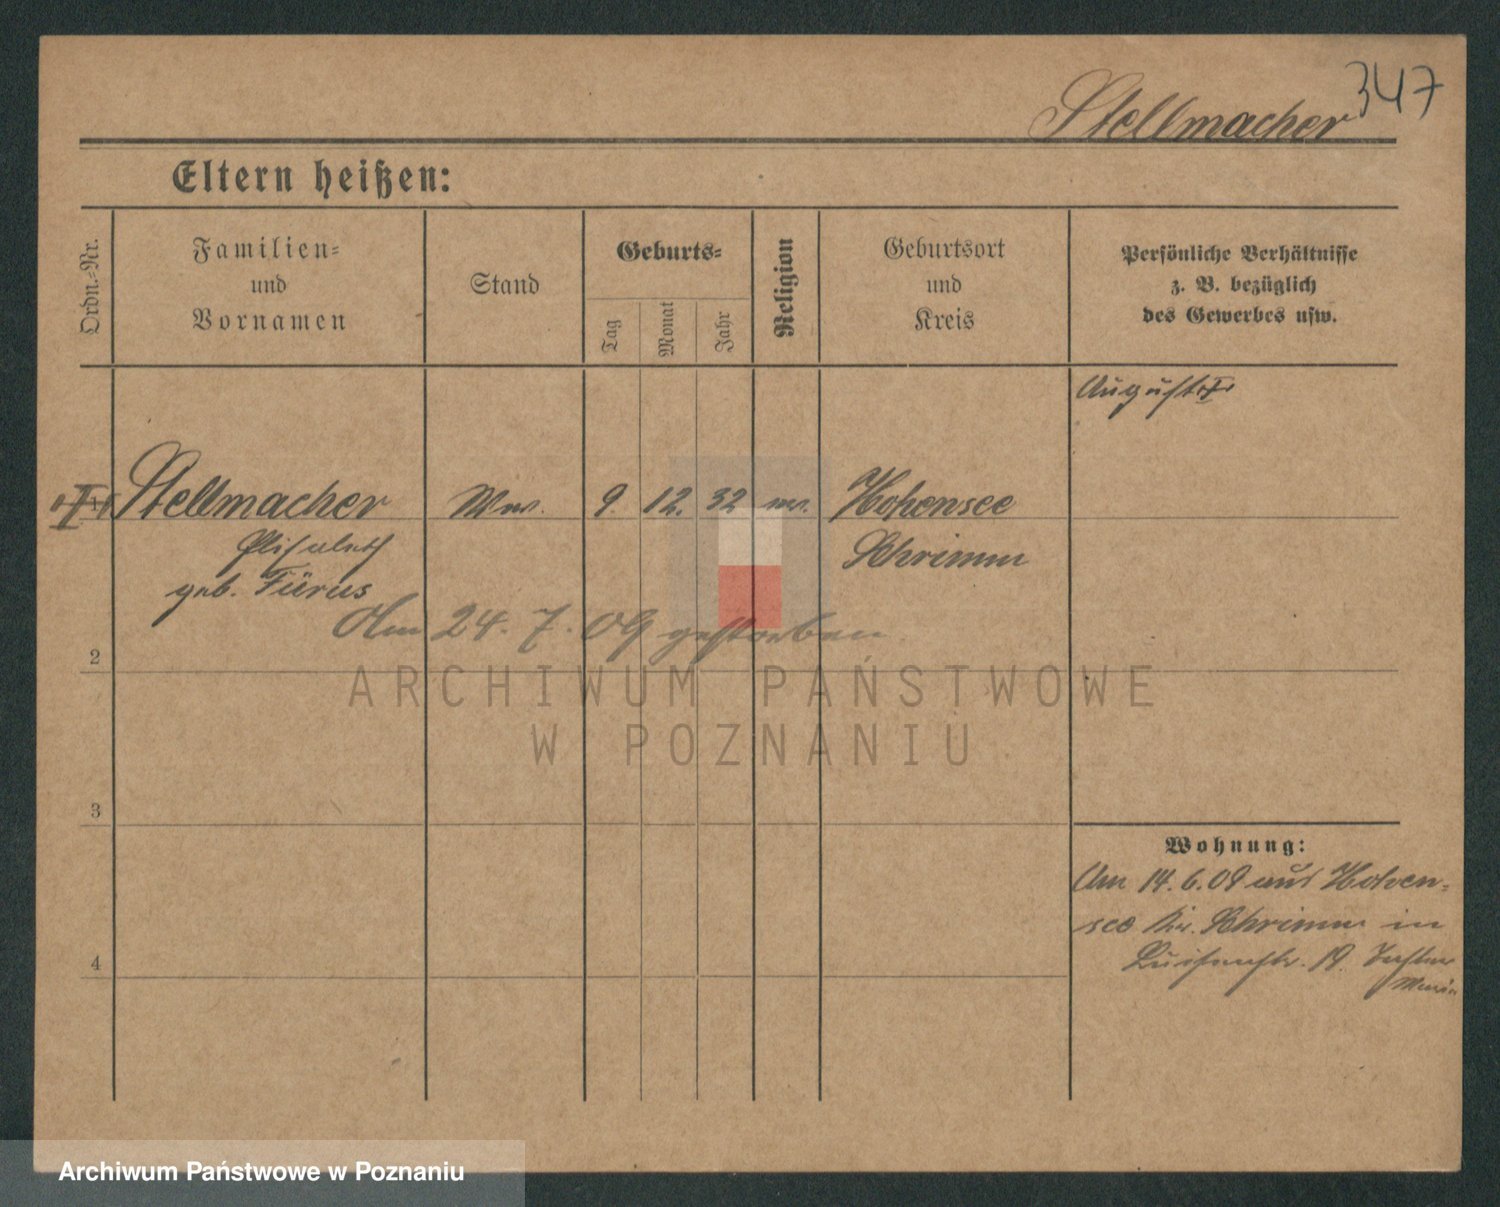 347
Stellmacher
Eltern heißen:
Ordn.-Nr.
Familien-
und
Vornamen
Stand
Geburts-
Tag
Monat
Jahr
Religion
Geburtsort
und
Kreis
Persönliche Verhältnisse
z. B. bezüglich
des Gewerbes usw.
August
1 Stellmacher Ww. 9. 12. 32 Hohensee
Elisabeth Schrimm
geb. Fürus
Am 24. 7. 09 gestorben
2
ARCHIWUM PAŃSTWOWE
W POZNANIU
3
Wohnung:
Am 14. 6. 09 aus Hohen-
see Kr. Schrimm in
Luisenstr. 19.
4
Archiwum Państwowe w Poznaniu